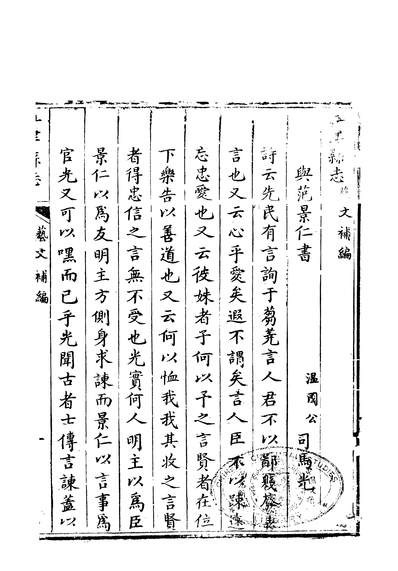 縣志 文補編
與范景仁書
溫國公 司馬光
詩云先民有言詢于芻蕘言人君不以鄙賤廢
言也又云心乎愛矣遐不謂矣言人臣不以踈遠
忘忠愛也又云彼姝者子何以予之言賢者在位
下樂告以善道也又云何以恤我我其收之言賢
者得忠信之言無不受也光實何人明主以爲臣
景仁以爲友明主方側身求諫而景仁以言事爲
官光又可以嘿而已乎光聞古者士傳言諫蓋以
縣志 藝文補編 一